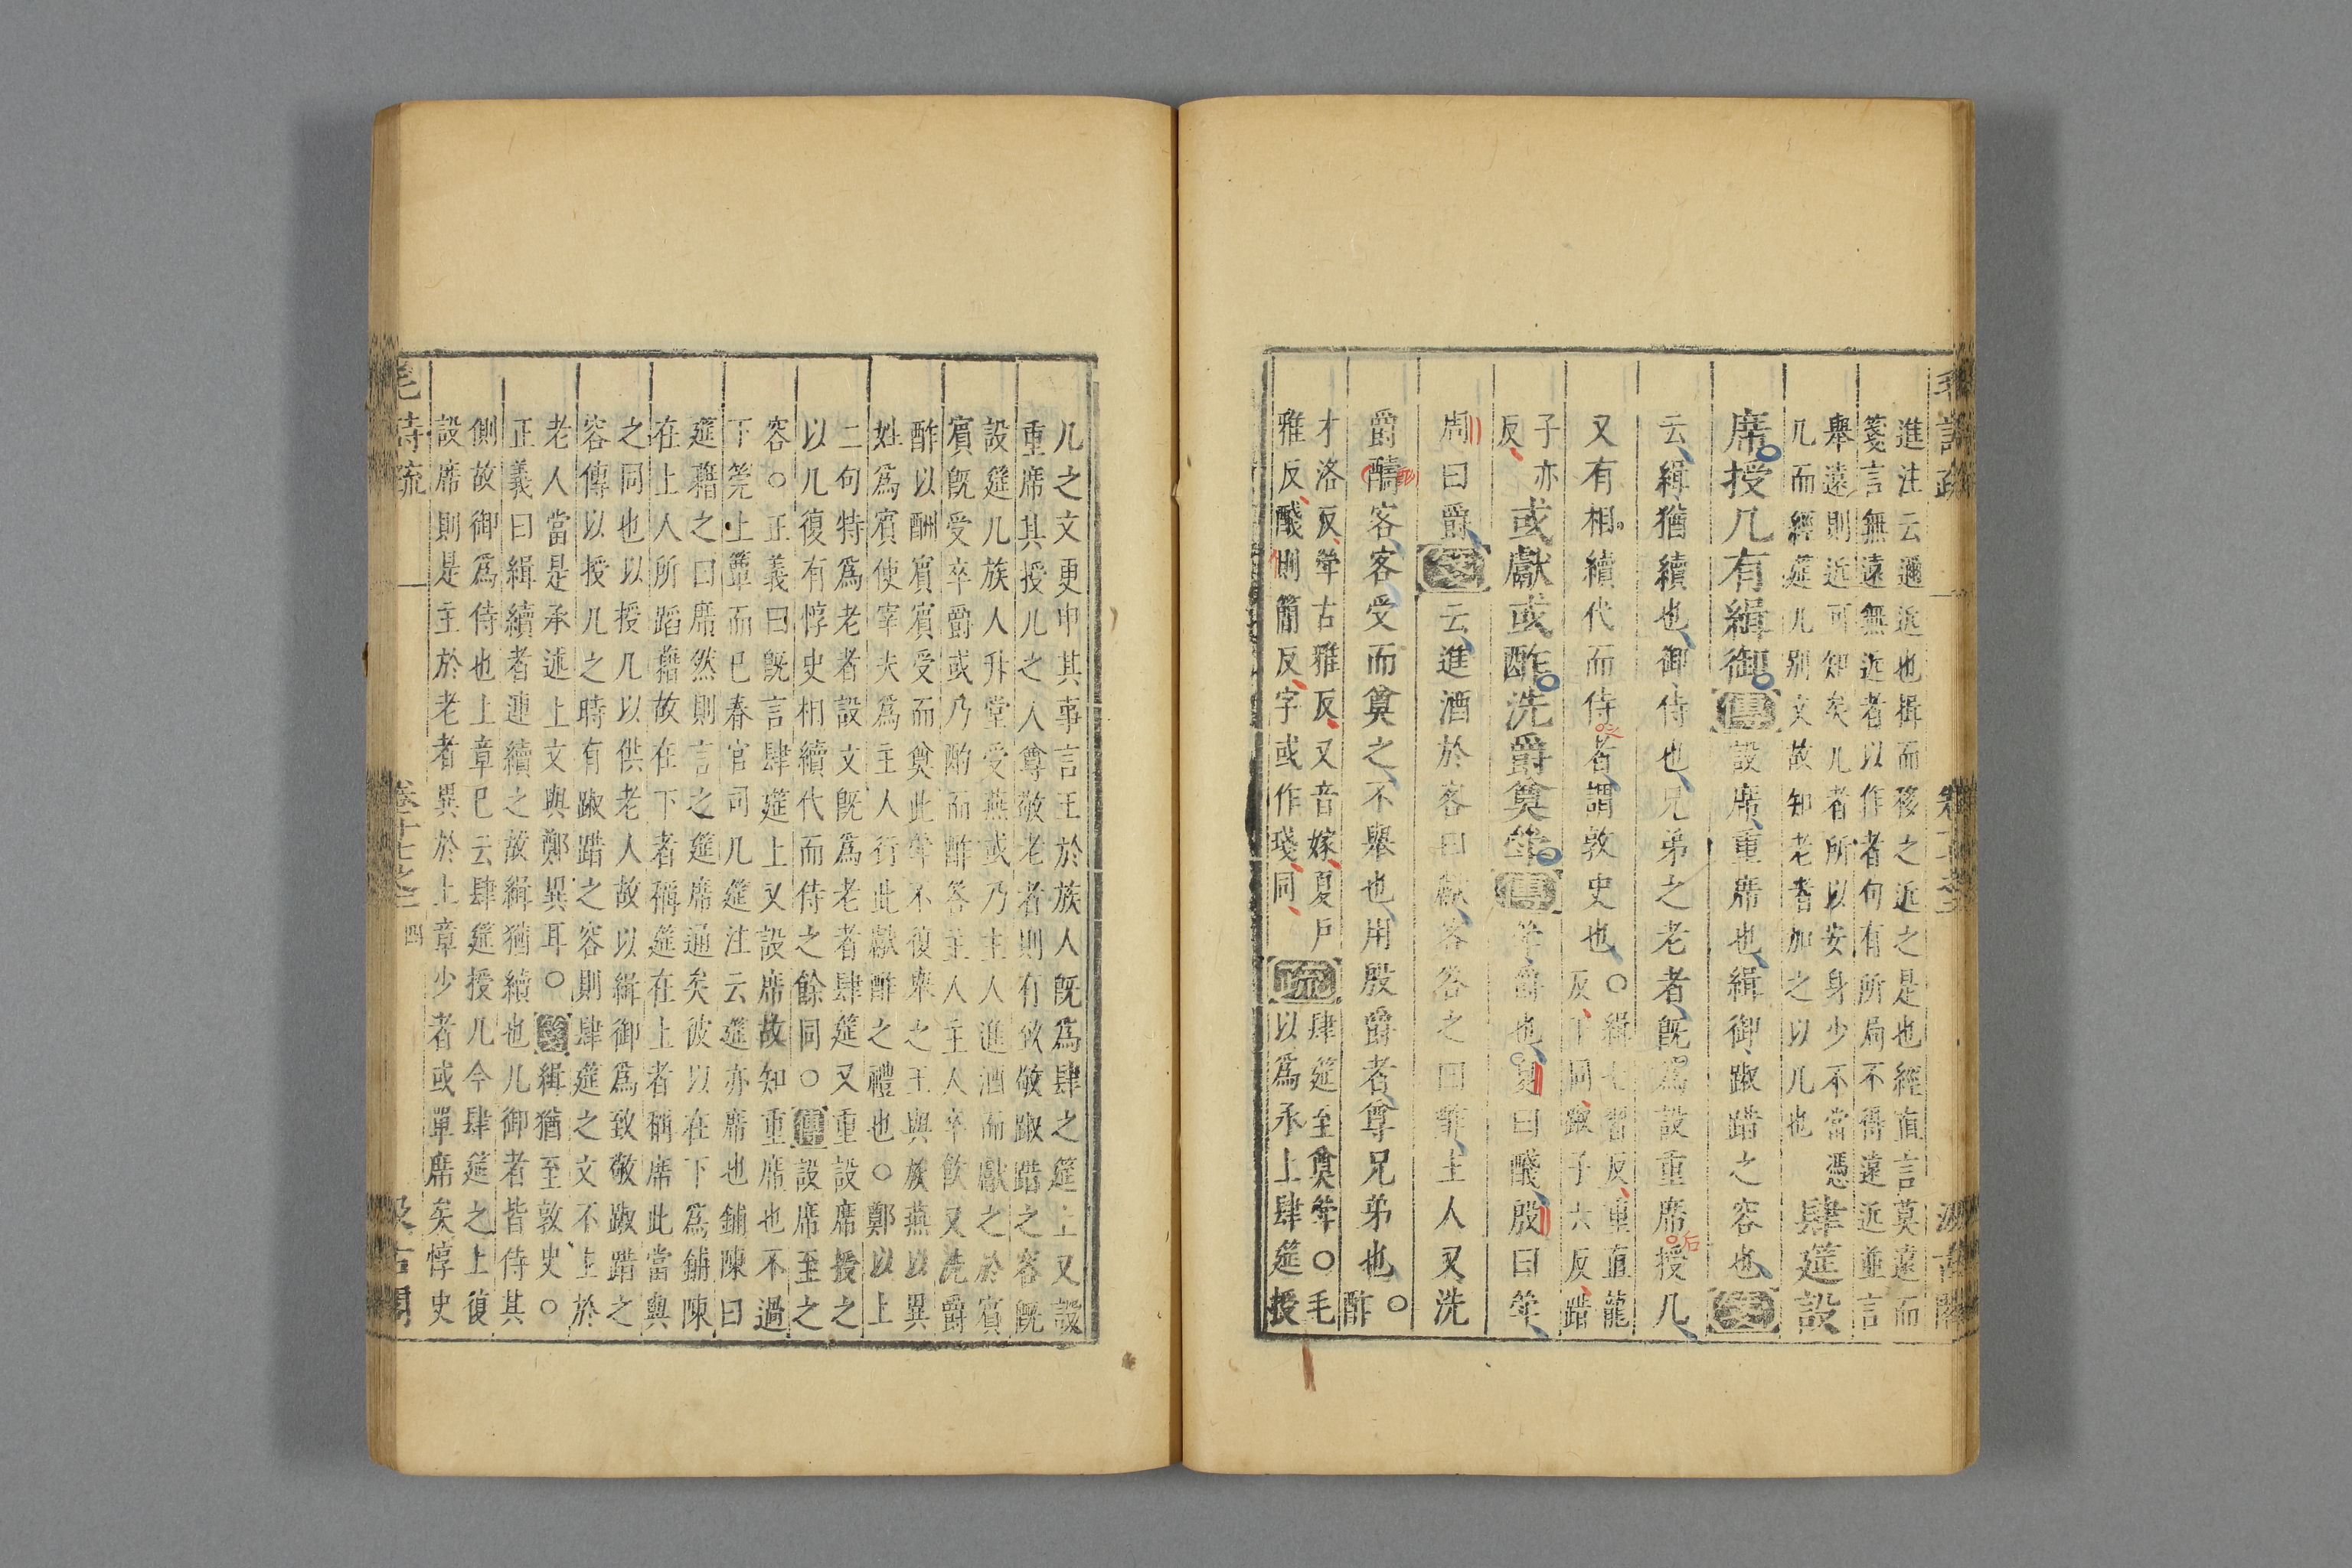 毛詩疏
進注云邇近也揖而移之近之是也經直言莫遠而
箋言無遠無近者以作者句有所局不得遠近並言
舉遠則近可知矣几者所以安身少不當憑
几而經筵几別文故知老者加之以几也
肆筵設
席授几有緝御傳設席重席也緝御踧踖之容也箋
云緝猶續也御侍也兄弟之老者既爲設重席授几
又有相續代而侍者謂敦史也
○緝七習反重直龍
反下同踧子六反踖
子亦
反
或獻或酢洗爵奠斝傳斝爵也夏曰醆殷曰斝
周曰爵箋云進酒於客曰獻客荅之曰酢主人又洗
爵醻客客受而奠之不舉也用殷爵者尊兄弟也
○
酢
才洛反斝古雅反又音嫁夏戶
雅反醆側簡反字或作琖同
疏
肆筵至奠斝○毛
以爲承上肆筵授
几之文更申其事言王於族人既爲肆之筵上又設
重席其授几之人尊敬老者則有致敬踧踖之容既
設筵几族人升堂受燕或乃主人進酒而獻之於賓
賓既受卒爵或乃酌而酢荅主人主人卒飲又洗爵
酢以酬賓賓受而奠此斝不復舉之王與族燕以異
姓爲賓使宰夫爲主人行此獻酢之禮也○鄭以上
二句特爲老者設文既爲老者肆筵又重設席授之
以几復有惇史相續代而侍之餘同○傳設席至之
容○正義曰既言肆筵上又設席故知重席也不過
下筦上簟而已春官司几筵注云筵亦席也鋪陳曰
筵藉之曰席然則言之筵席通矣彼以在下爲鋪陳
在上人所蹈藉故在下者稱筵在上者稱席此當與
之同也以授几以供老人故以緝御爲致敬踧踖之
容傳以授几之時有踧踖之容則肆筵之文不主於
老人當是承述上文與鄭異耳○箋緝猶至敦史○
正義曰緝續者連續之故緝猶續也几御者皆侍其
側故御爲侍也上章已云肆筵授几今肆筵之上復
設席則是主於老者異於上章少者或單席矣惇史
毛詩疏
卷十七之二
四
汲古閣